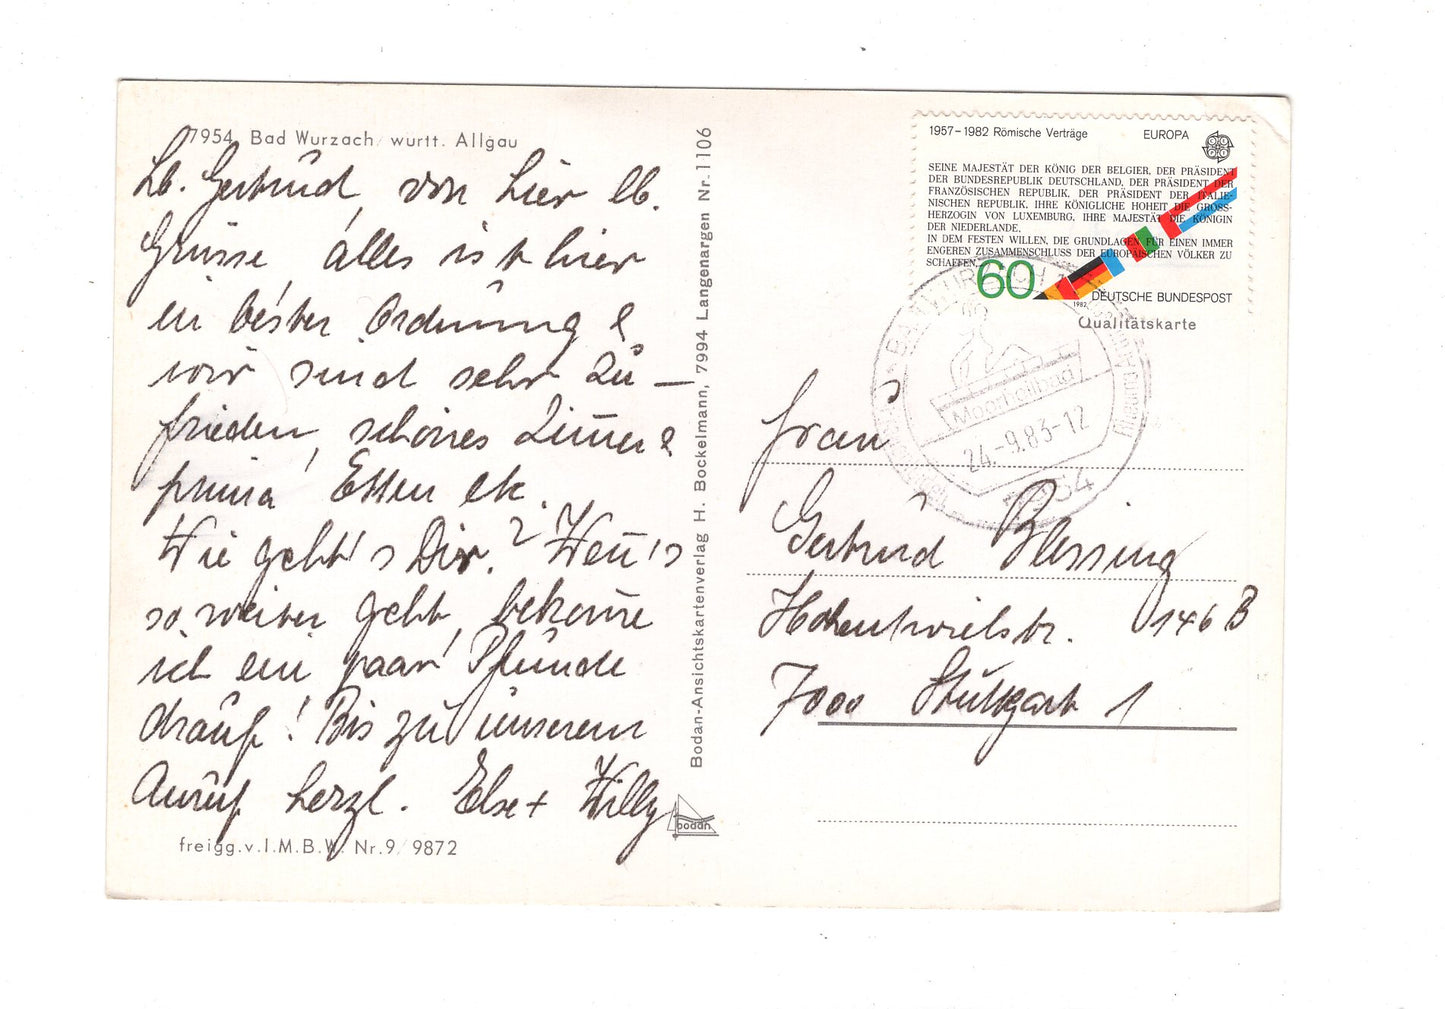 7954 Bad Wurzach, württ. Allgäu
Lb. Gertrud, von hier lb.
Grüsse, alles ist hier
in bester Ordnung &
wir sind sehr zu-
frieden, schönes Zimmer &
prima Essen etc.
Wie geht's Dir? Wenn's
so weiter geht, bekomme
ich ein paar Pfunde
drauf! Bis zu unserem
Anruf herzl. Else + Willy
freigg.v.I.M.B.W. Nr.9/9872
Bodan-Ansichtskartenverlag H. Bockelmann, 7994 Langenargen Nr.1106
bodan
1957-1982 Römische Verträge EUROPA
SEINE MAJESTÄT DER KÖNIG DER BELGIER, DER PRÄSIDENT
DER BUNDESREPUBLIK DEUTSCHLAND, DER PRÄSIDENT DER
FRANZÖSISCHEN REPUBLIK, DER PRÄSIDENT DER ITALIE-
NISCHEN REPUBLIK, IHRE KÖNIGLICHE HOHEIT DIE GROSS-
HERZOGIN VON LUXEMBURG, IHRE MAJESTÄT DIE KÖNIGIN
DER NIEDERLANDE,
IN DEM FESTEN WILLEN, DIE GRUNDLAGEN FÜR EINEN IMMER
ENGEREN ZUSAMMENSCHLUSS DER EUROPÄISCHEN VÖLKER ZU
SCHAFFEN,
60
1982
DEUTSCHE BUNDESPOST
Qualitätskarte
BAD WURZACH 1
Moorheilbad
24.-9.83-12
7954
Frau
Gertrud Blessing
Hohentwielstr. 146 B
7000 Stuttgart 1